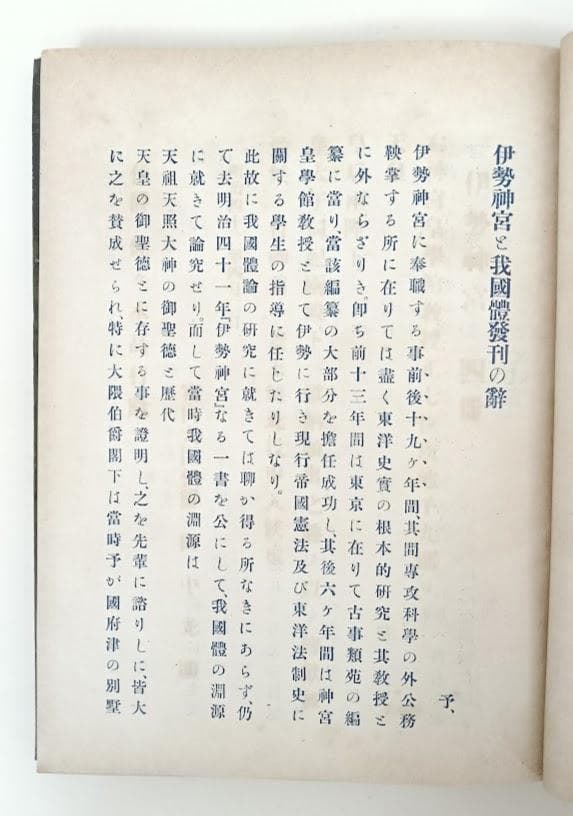 伊勢神宮と我國體發刊の辭
予、
伊勢神宮に奉職する事前後十九ケ年間、其間專攻科學の外公務
鞅掌する所に在りては盡く東洋史實の根本的硏究と其敎授と
に外ならざりき。卽ち前十三年間は東京に在りて古事類苑の編
纂に當り、當該編纂の大部分を擔任成功し、其後六ケ年間は神宮
皇學館敎授として伊勢に行き現行帝國憲法及び東洋法制史に
關する學生の指導に任じたりしなり。
此故に我國體論の硏究に就きては聊か得る所なきにあらず、仍
て去明治四十一年『伊勢神宮』なる一書を公にして、我國體の淵源
に就きて論究せり。而して當時我國體の淵源は
天祖天照大神の御聖德と歷代
天皇の御聖德とに存する事を證明し、之を先輩に諮りしに、皆大
に之を賛成せられ、特に大隈伯爵閣下は當時予が國府津の別墅